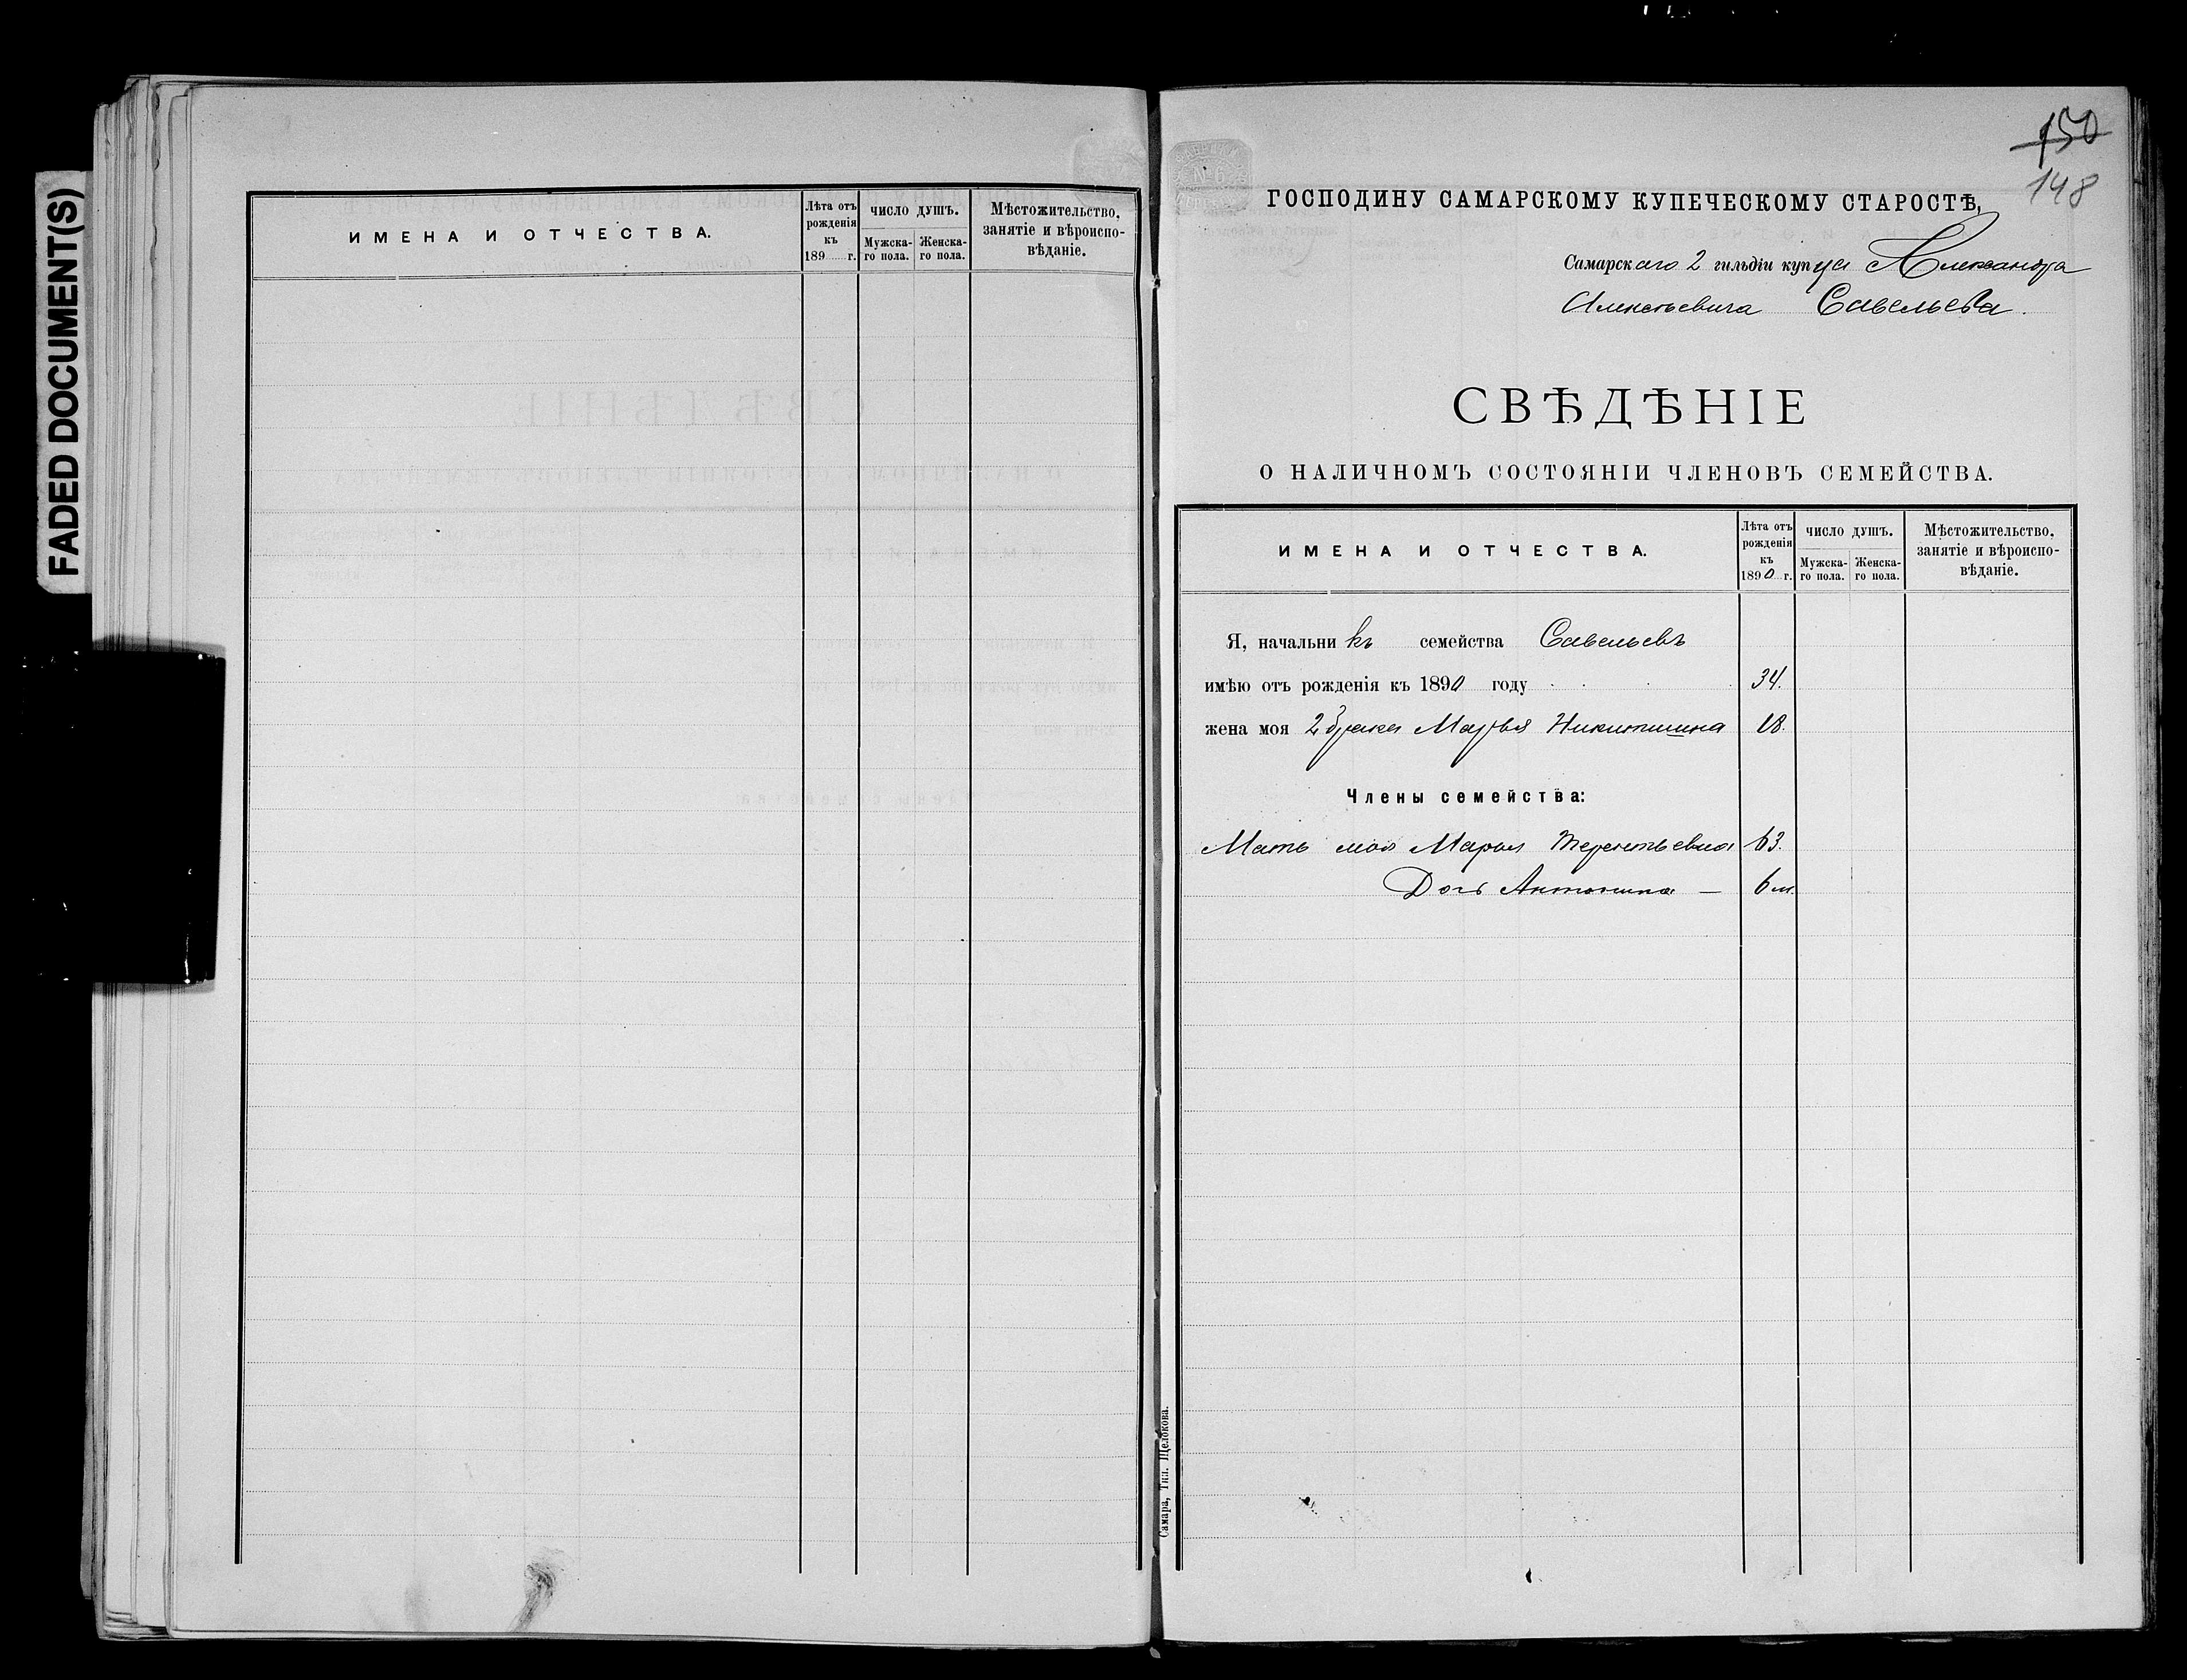 FADED DOCUMENT(S)
ИМЕНА И ОТЧЕСТВА.
Лѣта отъ рожденія къ 189 г.
ЧИСЛО ДУШЪ.
Мужска-го пола.
Женска-го пола.
Мѣстожительство, занятіе и вѣроиспо-вѣданіе.
150
148
ГОСПОДИНУ САМАРСКОМУ КУПЕЧЕСКОМУ СТАРОСТѢ,
Самарскаго 2 гильдіи купца Александра
Алексѣевича Савельева.
СВѢДѢНІЕ
О НАЛИЧНОМЪ СОСТОЯНІИ ЧЛЕНОВЪ СЕМЕЙСТВА.
ИМЕНА И ОТЧЕСТВА.
Лѣта отъ рожденія къ 1890 г.
ЧИСЛО ДУШЪ.
Мужска-го пола.
Женска-го пола.
Мѣстожительство, занятіе и вѣроиспо-вѣданіе.
Я, начальникъ семейства Савельевъ
имѣю отъ рожденія къ 1890 году 34.
жена моя 2 брака Марья Никитишна 18.
Члены семейства:
Мать моя Марья Терентьевна 63.
Дочь Антонина — 6 м.
Самара, Тип. Щелокова.